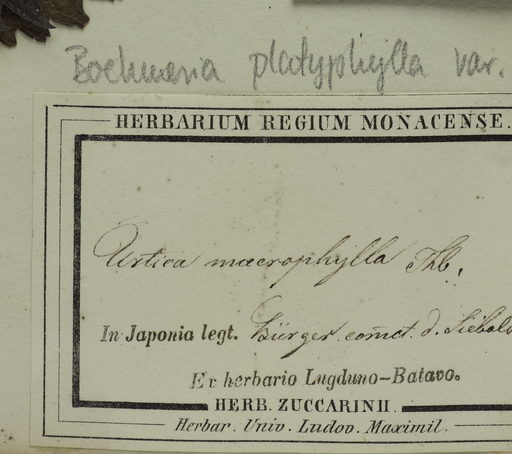 Boehmeria platyphylla var.
HERBARIUM REGIUM MONACENSE.
Urtica macrophylla Thb.
In Japonia legt. Bürger. com̄ct. d. Siebold
Ex herbario Lugduno–Batavo.
HERB. ZUCCARINII.
Herbar. Univ. Ludov. Maximil.